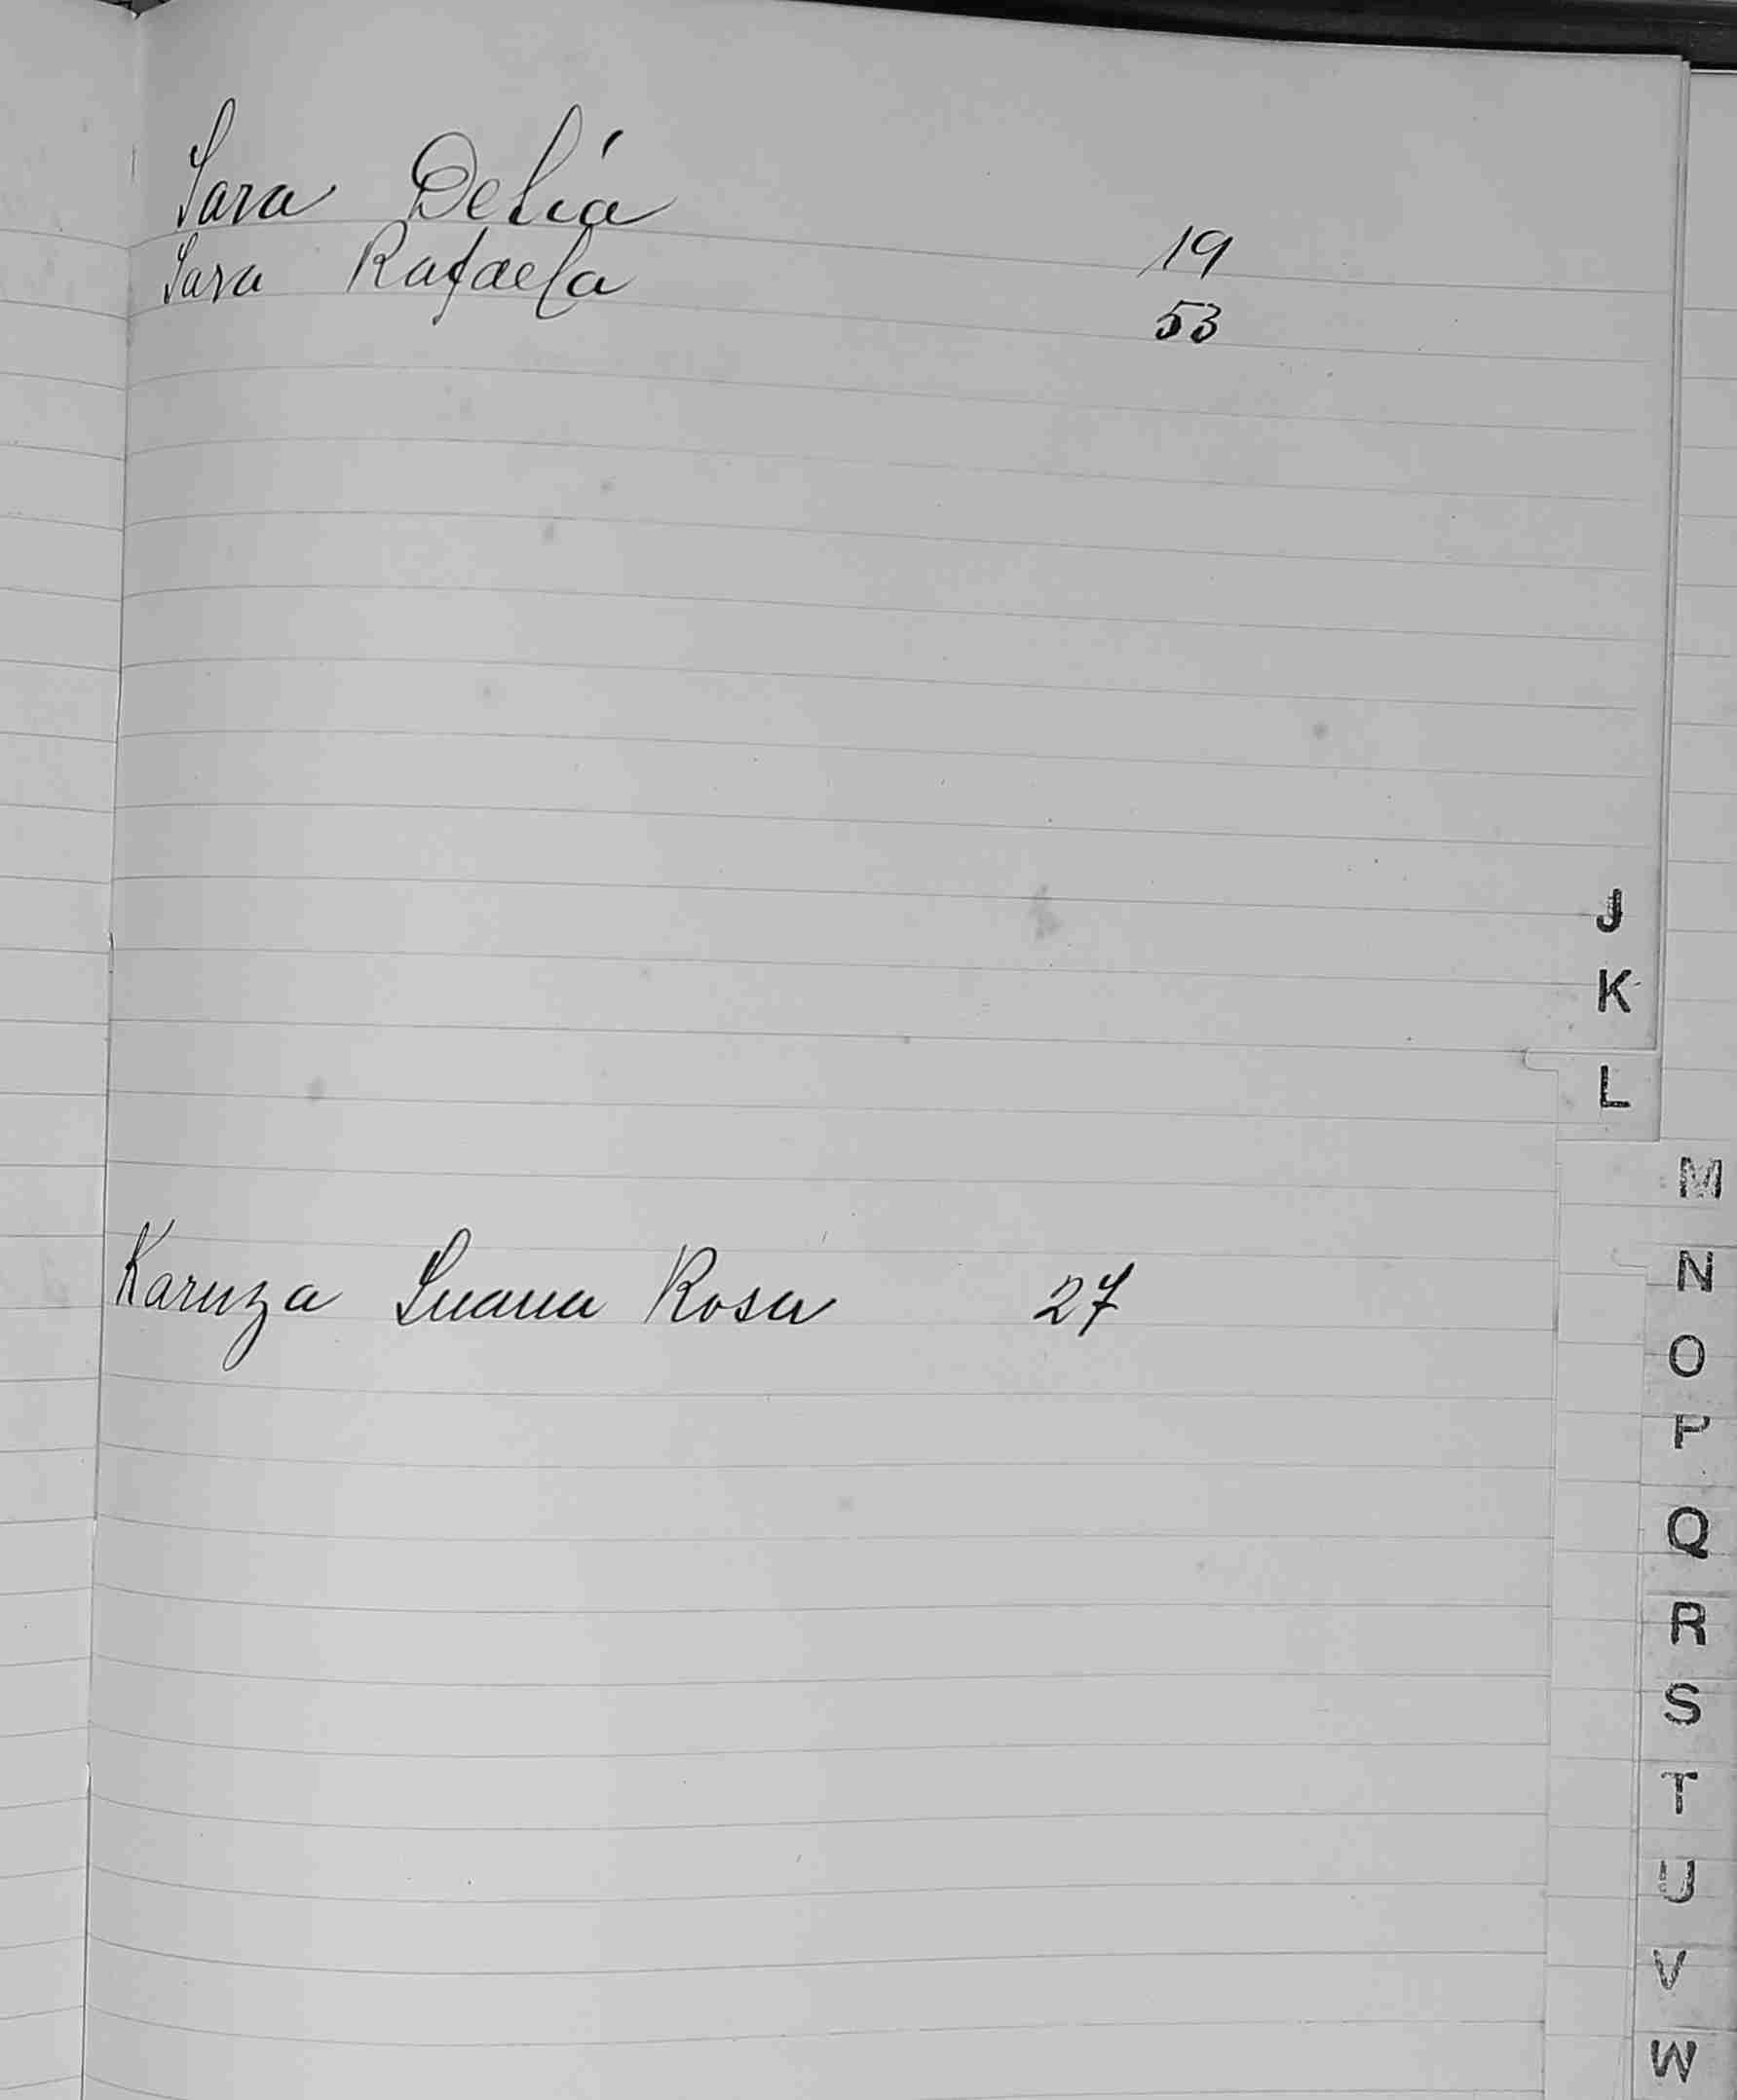 Jara Delia
19
Jara Rafaela
53
J
K
L
M
Karuza Juana Rosa 27
N
O
P
Q
R
S
T
U
V
W